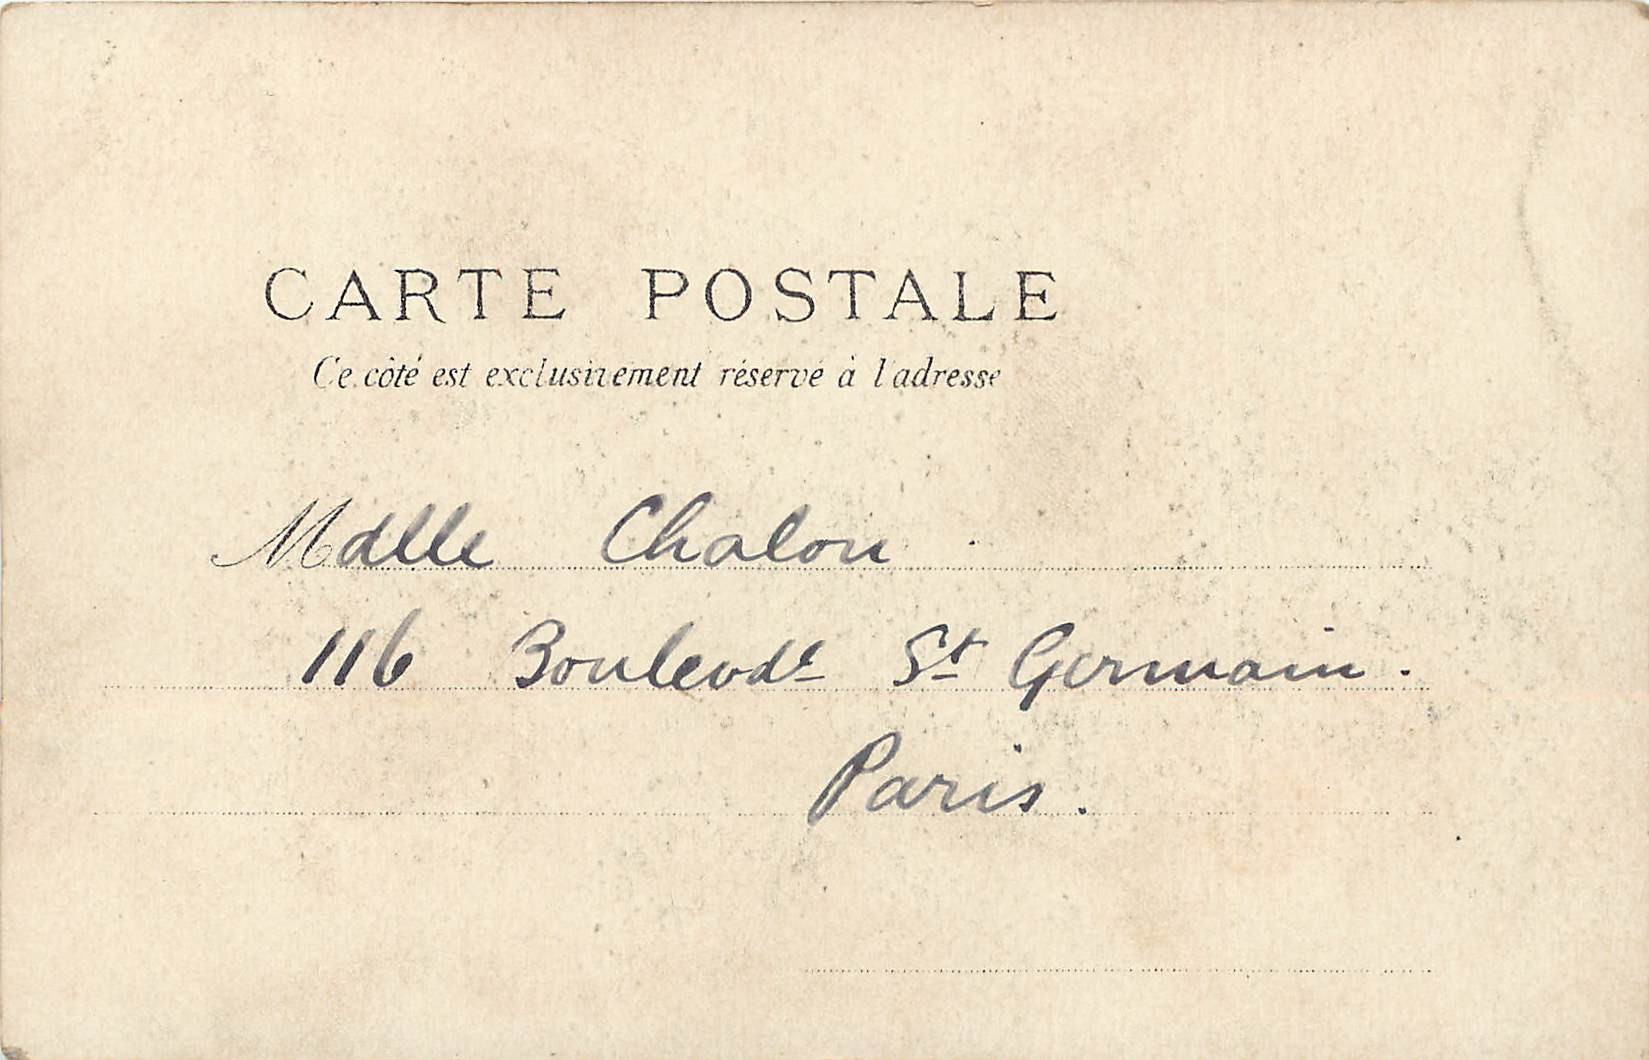 CARTE POSTALE
Ce côté est exclusivement réservé à l'adresse
Mdlle Chalon
116 Boulevde St Germain.
Paris.